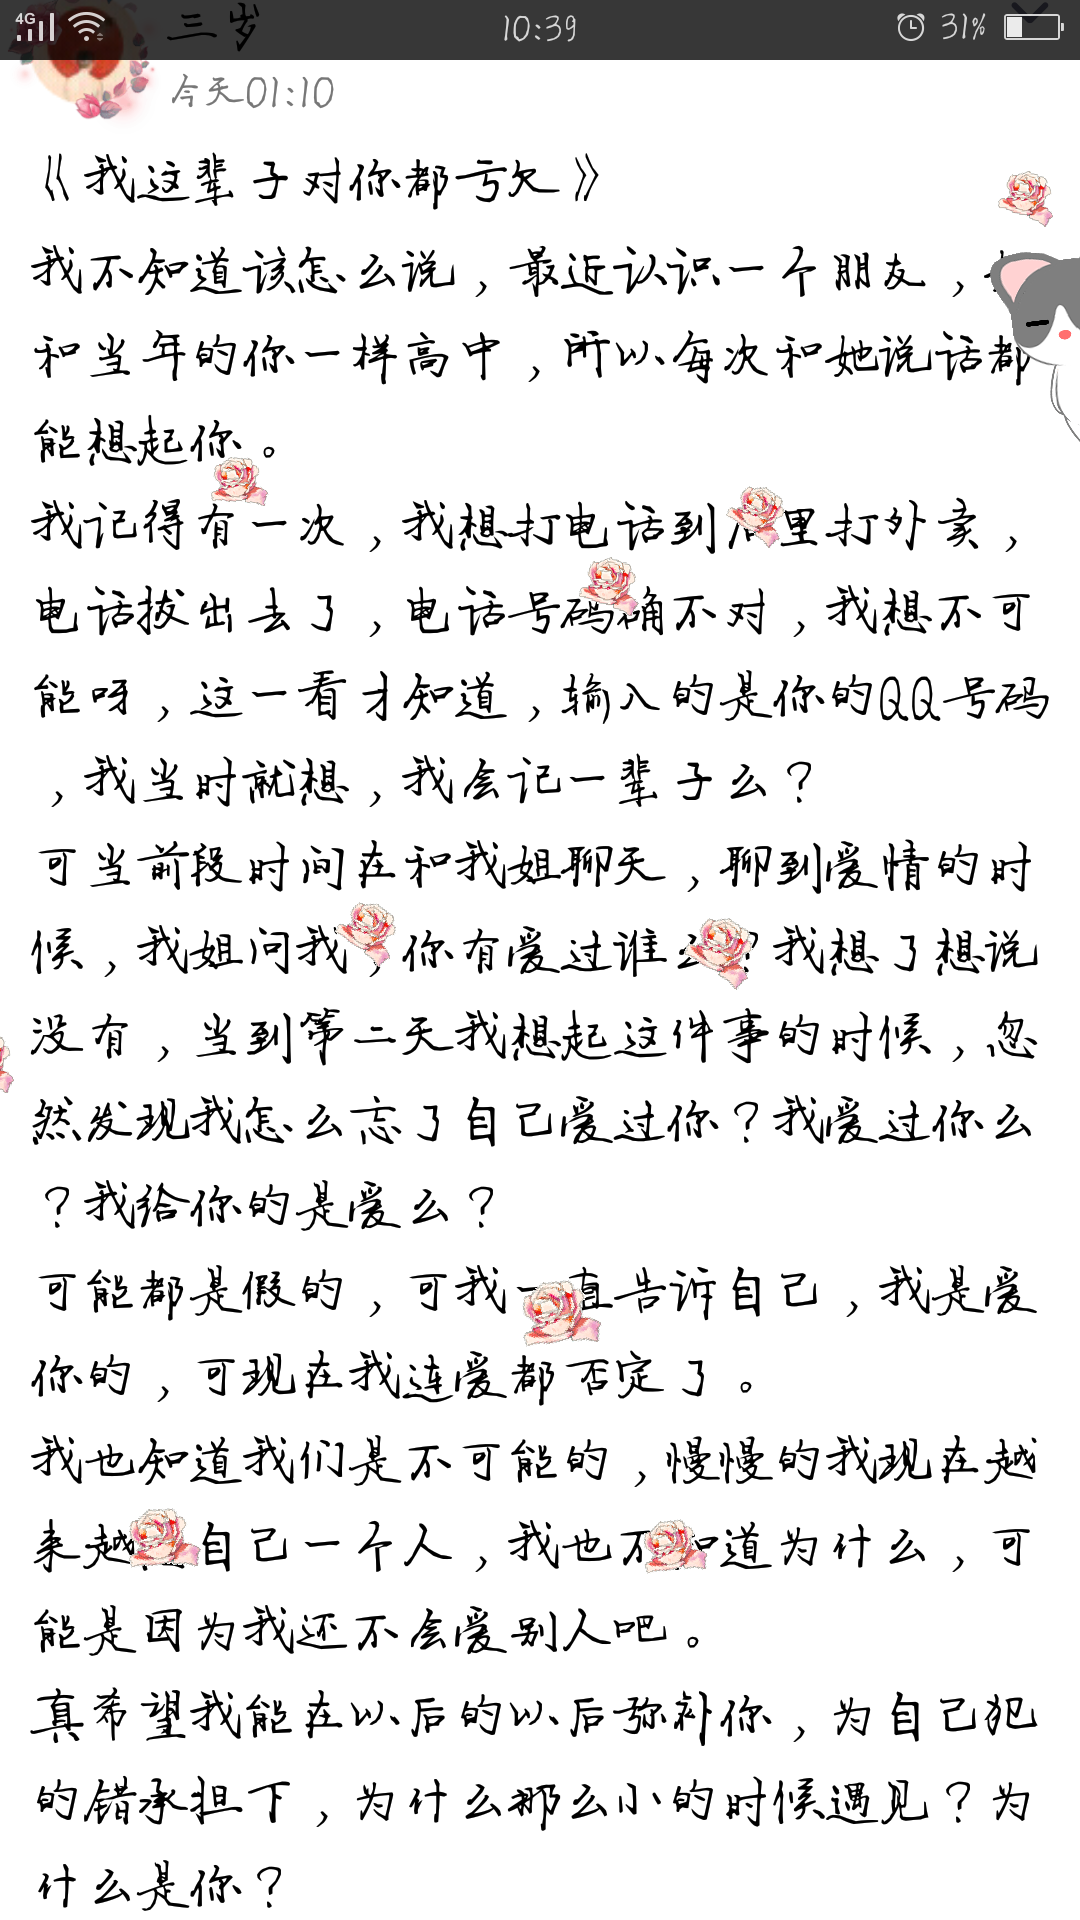 4G 10:39 31%
三岁
今天01:10
《我这辈子对你都亏欠》
我不知道该怎么说，最近认识一个朋友，
和当年的你一样高中，所以每次和她说话都
能想起你。
我记得有一次，我想打电话到 里打外卖，
电话拔出去了，电话号码确不对，我想不可
能呀，这一看才知道，输入的是你的QQ号码
，我当时就想，我会记一辈子么？
可当前段时间在和我姐聊天，聊到爱情的时
候，我姐问我，你有爱过谁么？我想了想说
没有，当到第二天我想起这件事的时候，忽
然发现我怎么忘了自己爱过你？我爱过你么
？我给你的是爱么？
可能都是假的，可我一直告诉自己，我是爱
你的，可现在我连爱都否定了。
我也知道我们是不可能的，慢慢的我现在越
来越 自己一个人，我也不知道为什么，可
能是因为我还不会爱别人吧。
真希望我能在以后的以后弥补你，为自己犯
的错承担下，为什么那么小的时候遇见？为
什么是你？